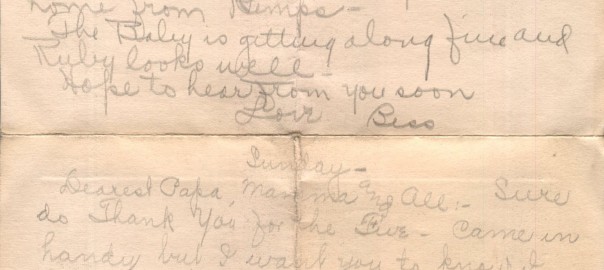 home from Kemps-
The Baby is getting along fine and
Ruby looks well-
Hope to hear from you soon
Love Bess
Sunday-
Dearest Papa, Mamma and All:- Sure
do Thank You for the Five- Came in
handy but I want you to know I